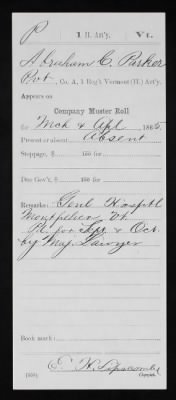 P 1 H. Art'y. Vt.
Abraham C. Parker
Pvt, Co. A, 1 Reg't Vermont (H.) Art'y.
Appears on
Company Muster Roll
for Mch & Apl, 1865.
Present or absent Absent
Stoppage, $ 100 for
Due Gov't, $ 100 for
Remarks: Genl Hospitl
Montpelier Vt.
Pd. for Sep. & Oct.
by Maj. Sawyer
Book mark:
E. H. Lipscomb
(358) Copyist.